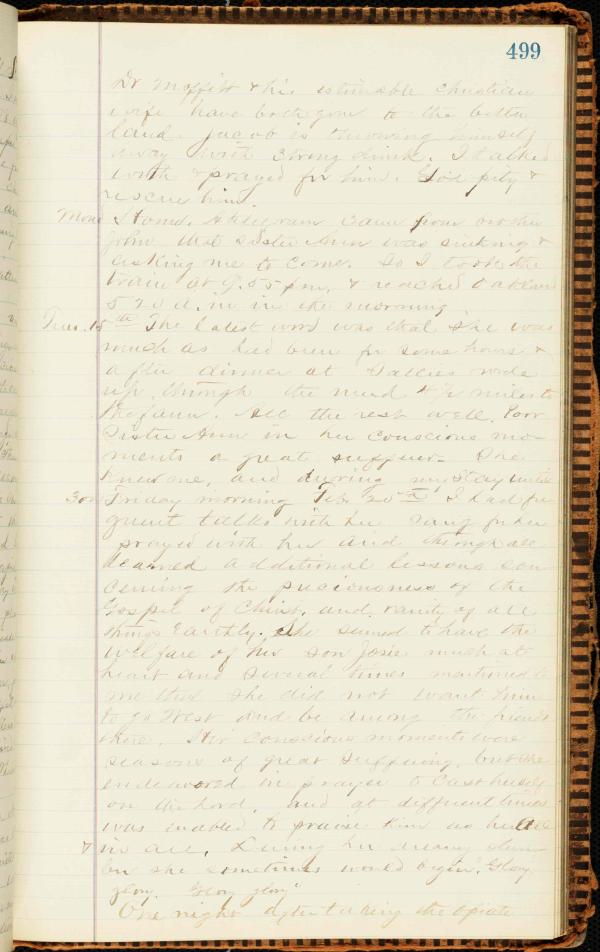 499
Dr Moffitt & his estimable christian
wife have both gone to the better
land. Jacob is throwing himself
away with strong drink. I talked
with & prayed for him. God pity &
rescue him.
Mon home. A telegram came from brother
John that sister Ann was sinking &
asking me to come. So I took the
train at 9.55 p.m. & reached
5 20 a.m in the morning
Tues. 18th The latest word was that she was
much as had been for some hours &
after dinner at rode
up through the mud 4½ miles to
the farm. All the rest well. Poor
Sister Ann in her conscious mo-
ments a great sufferer. She
knew me, and during my stay until
Friday morning Feb 20th I had fre
quent talks with her sang for her
prayed with her and through all
learned additional lessons con-
cerning the preciousness of the
Gospel of Christ, and vanity of all
things Earthly. She seemed to have the
welfare of her son Josie much at
heart and several times mentioned to
me that she did not want him
to go West and be among the friends
there. Her conscious moments were
seasons of great suffering, but she
endeavored in prayer to cast herself
on the Lord, and at different times
was enabled to praise Him as her all
& in all. During her dreamy slum-
ber she sometimes would begin "Glory,
glory. Glory glory"
One night after taking the opiate